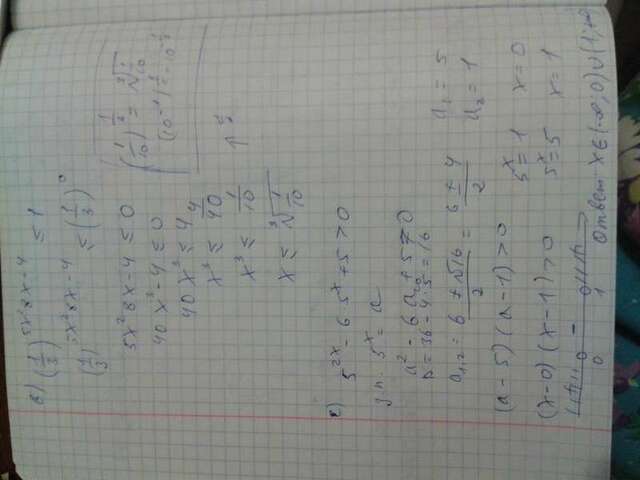 в) (1/3)^{5x² 8x-4} ≤ 1
(1/3)^{5x² 8x-4} ≤ (1/3)^0
5x² 8x-4 ≤ 0
40x³-4 ≤ 0
40x³ ≤ 4
x³ ≤ 4/40
x³ ≤ 1/10
x ≤ ³√(1/10)
(1/10)^{1/3} = ³√(1/10)
5^{2x} - 6·5^x + 5 > 0
5^x = a
a² - 6a + 5 = 0
D = 36 - 4·5 = 16
a_{1,2} = (6 ± √16)/2 = (6 ± 4)/2
a_1 = 5
a_2 = 1
(a-5)(a-1) > 0
5^x = 1 x = 0
5^x = 5 x = 1
(x-0)(x-1) > 0
0 1
Ответ: x∈(-∞; 0)∪(1; +∞)